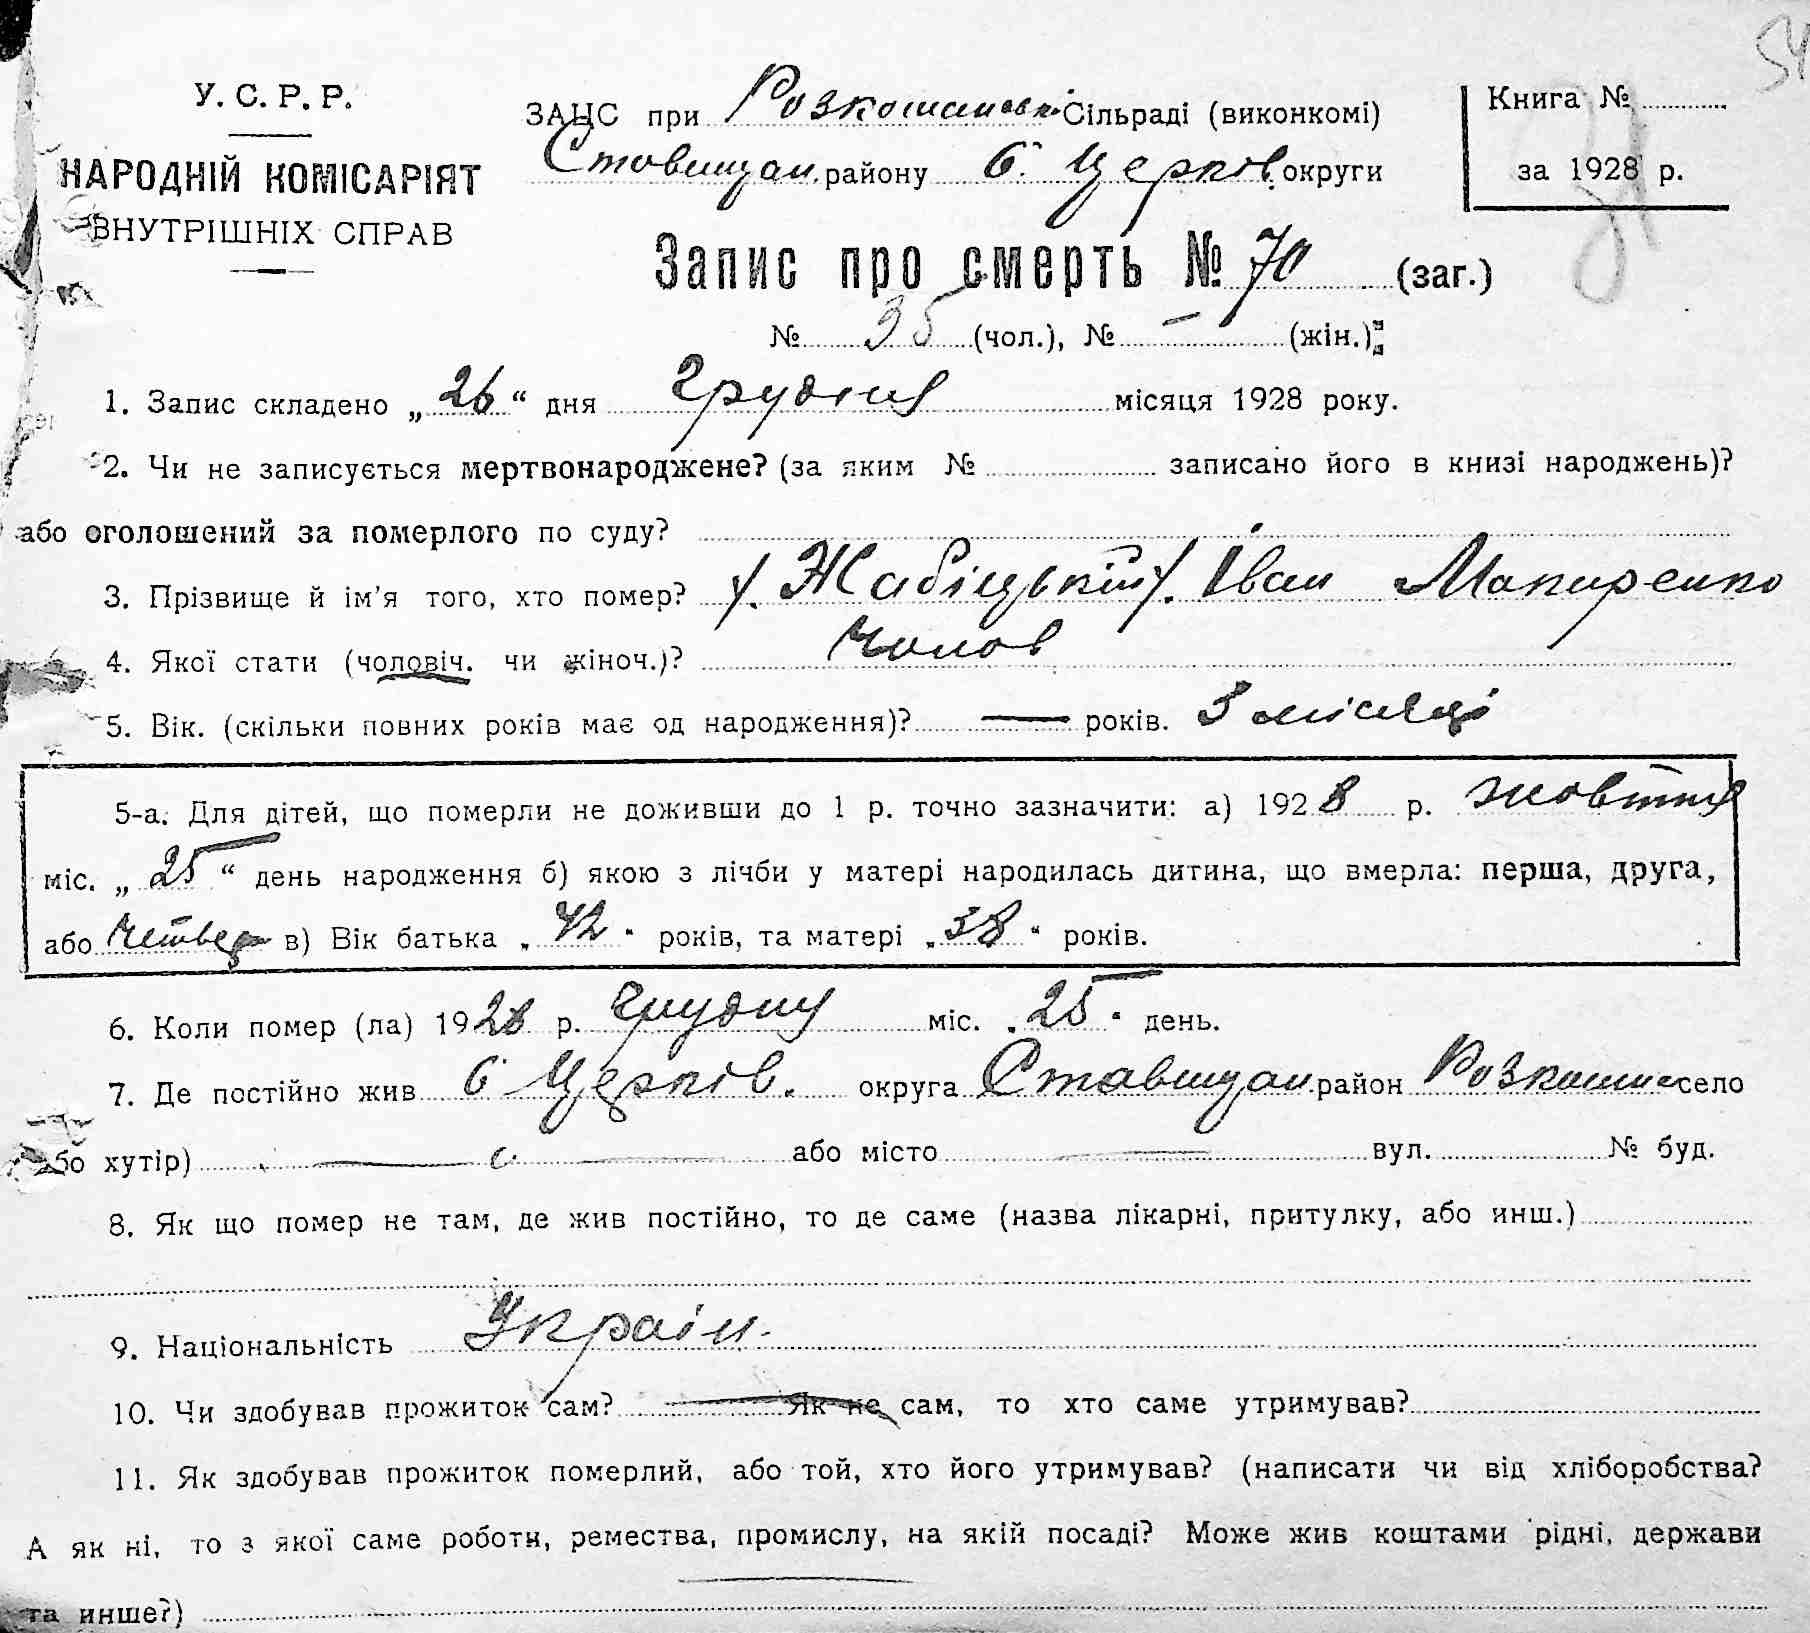 54
У. С. Р. Р.
НАРОДНІЙ КОМІСАРІЯТ
ВНУТРІШНІХ СПРАВ
ЗАЦС при Розкошанськ. Сільраді (виконкомі)
Ставищан. району Б. Церків. округи
Книга №
за 1928 р.
Запис про смерть № 70 (заг.)
№ 35 (чол.), № — (жін.)
1. Запис складено „ 26 “ дня Грудня місяця 1928 року.
2. Чи не записується мертвонароджене? (за яким № записано його в книзі народжень)?
або оголошений за померлого по суду?
3. Прізвище й ім'я того, хто помер? /. Жабіцький /. Іван Макиренко
4. Якої стати (чоловіч. чи жіноч.)? Чолов
5. Вік. (скільки повних років має од народження)? — років. 3 місяці
5-а. Для дітей, що померли не доживши до 1 р. точно зазначити: а) 1928 р. жовтня
міс. „ 25 “ день народження б) якою з лічби у матері народилась дитина, що вмерла: перша, друга,
або четвер в) Вік батька „ 42 “ років, та матері „ 38 “ років.
6. Коли помер (ла) 1928 р. Грудня міс. „ 25 “ день.
7. Де постійно жив Б Церків. округа Ставищан. район село
або хутір) або місто вул. № буд.
8. Як що помер не там, де жив постійно, то де саме (назва лікарні, притулку, або инш.)
9. Національність Україн.
10. Чи здобував прожиток сам? — Як не сам, то хто саме утримував?
11. Як здобував прожиток померлий, або той, хто його утримував? (написати чи від хліборобства?
А як ні, то з якої саме роботи, ремества, промислу, на якій посаді? Може жив коштами рідні, держави
та инше?)